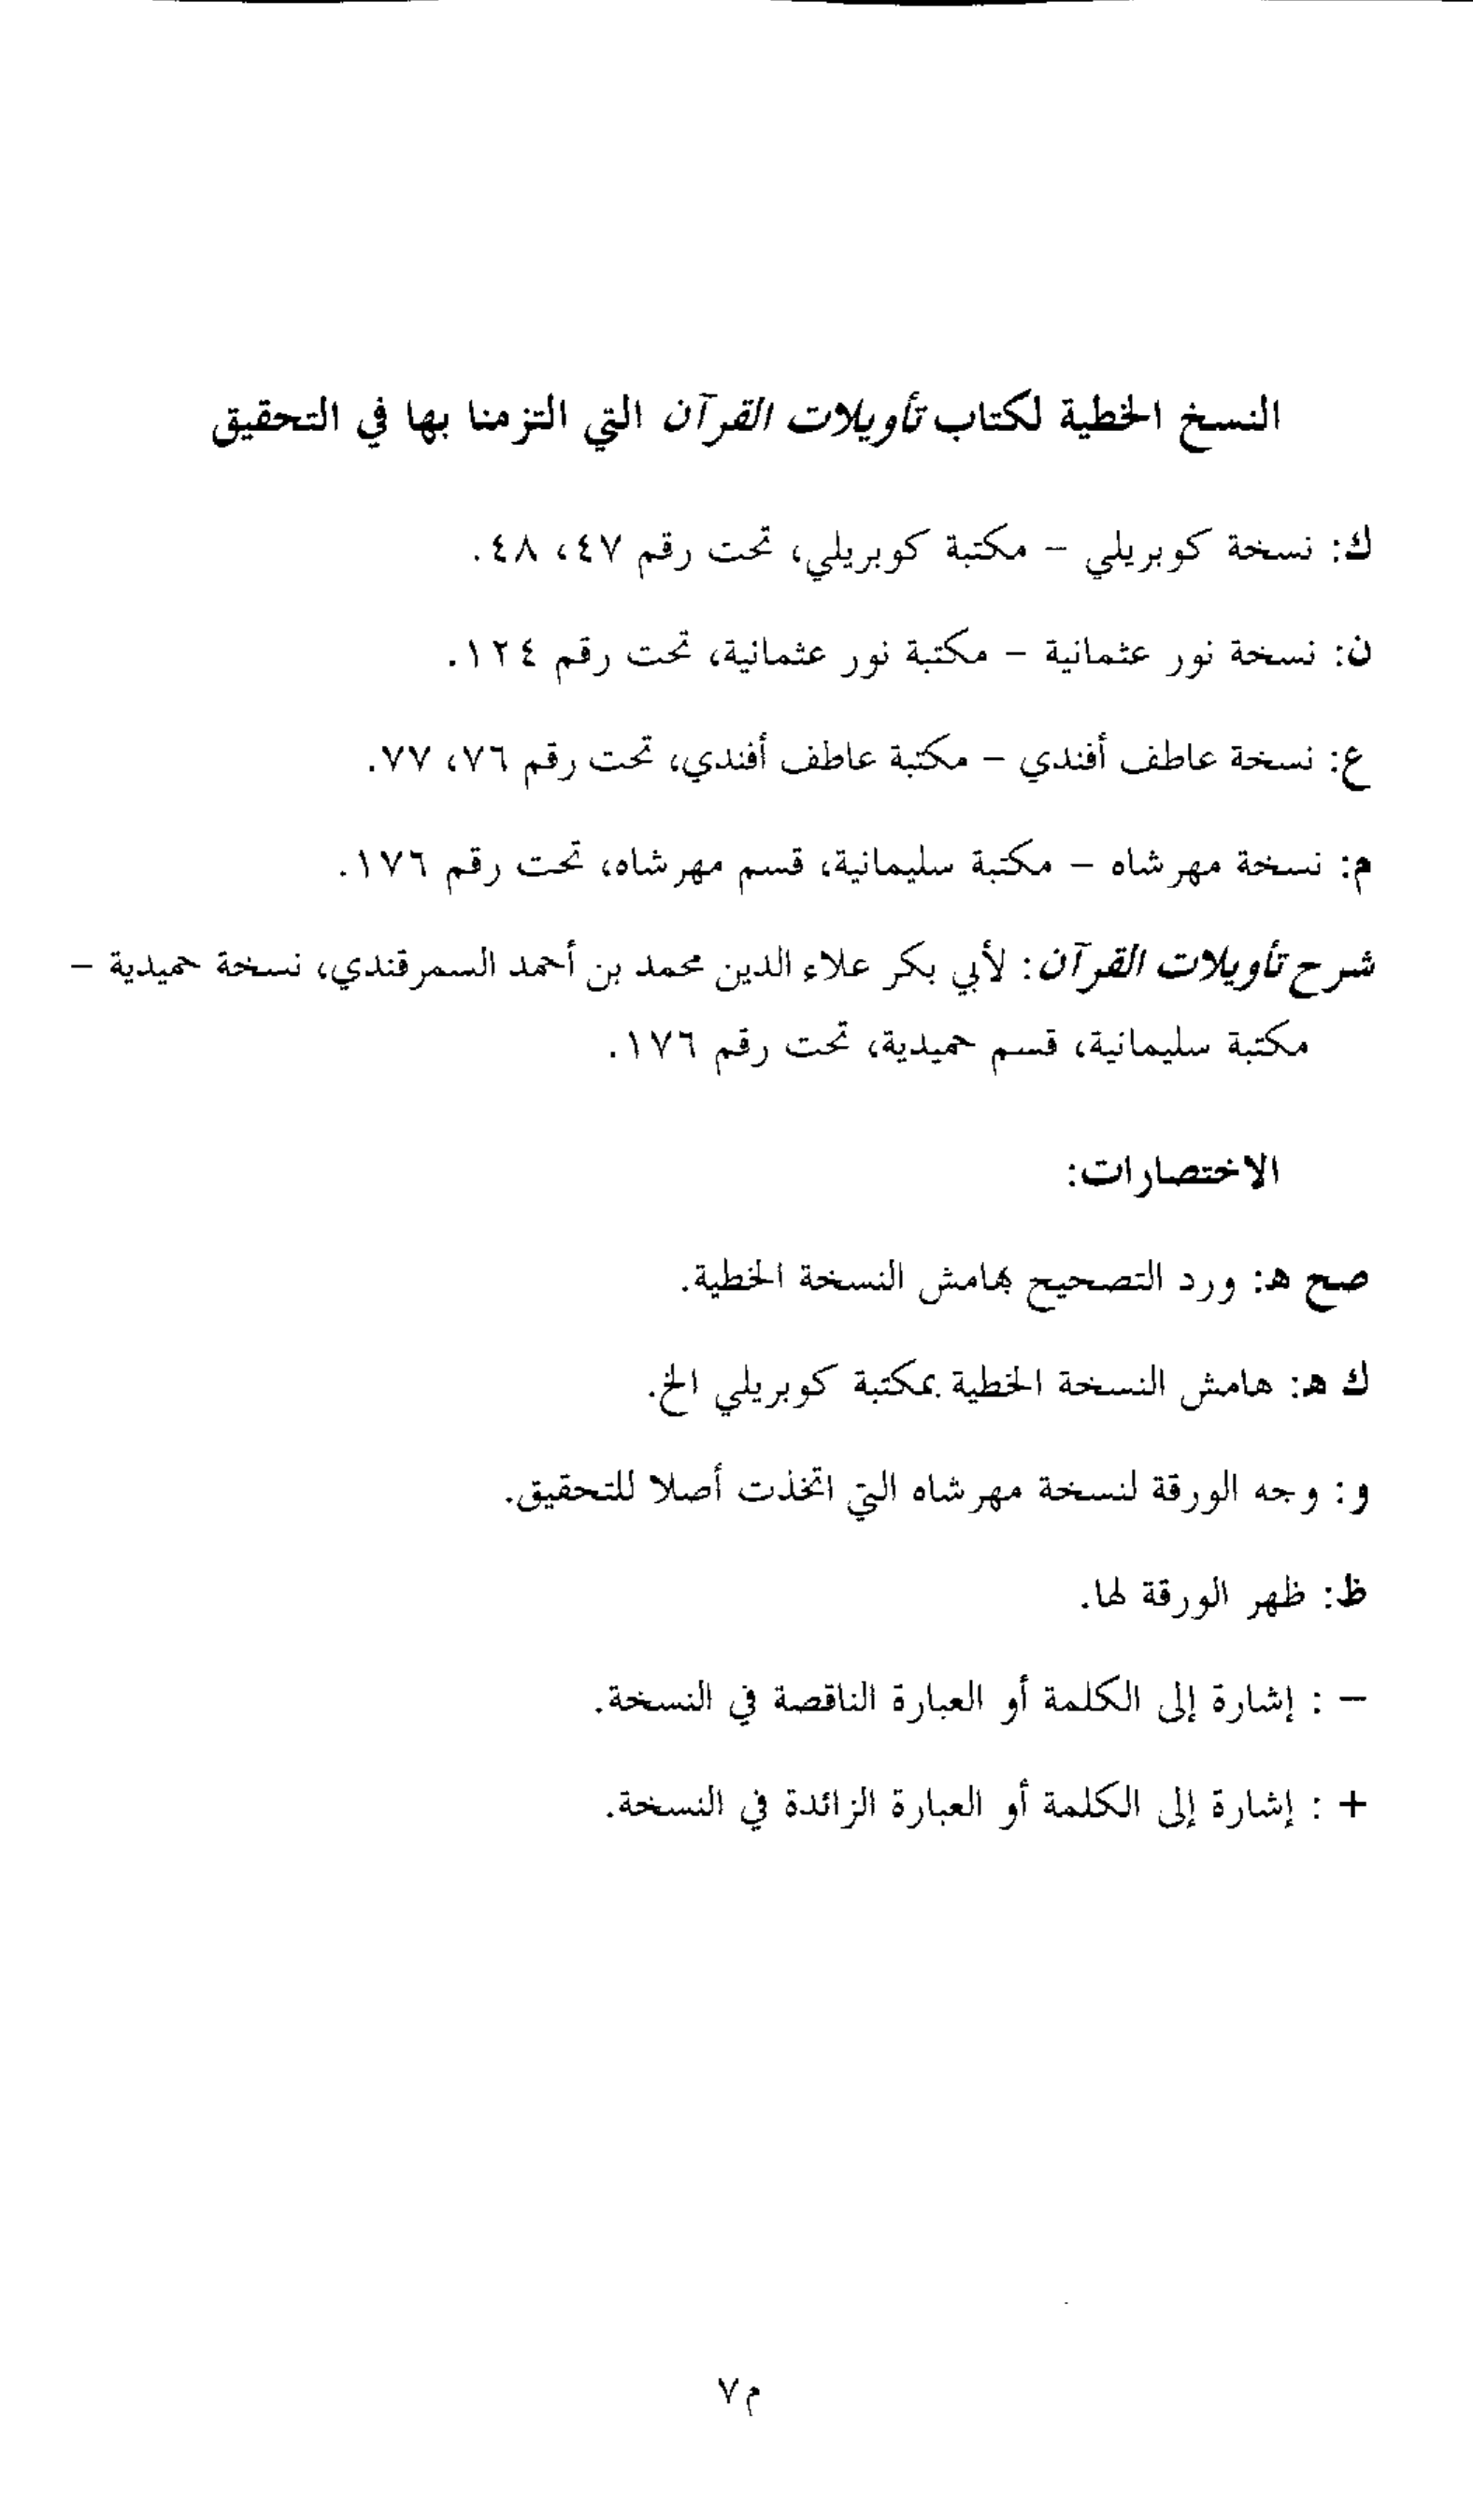 النسخ الخطية لكتاب تأويلات القرآن التي التزمنا بها في التحقيق
ك: نسخة كوبريلي – مكتبة كوبريلي، تحت رقم ٤٧، ٤٨.
ن: نسخة نور عثمانية – مكتبة نور عثمانية، تحت رقم ١٢٤.
ع: نسخة عاطف أفندي – مكتبة عاطف أفندي، تحت رقم ٧٦، ٧٧.
م: نسخة مهرشاه – مكتبة سليمانية، قسم مهرشاه، تحت رقم ١٧٦.
شرح تأويلات القرآن: لأبي بكر علاء الدين محمد بن أحمد السمرقندي، نسخة حميدية –
مكتبة سليمانية، قسم حميدية، تحت رقم ١٧٦.
الاختصارات:
صح هـ: ورد التصحيح بهامش النسخة الخطية.
ك هـ: هامش النسخة الخطية بمكتبة كوبريلي الخ.
و: وجه الورقة لنسخة مهرشاه التي اتخذت أصلا للتحقيق.
ظ: ظهر الورقة لها.
– : إشارة إلى الكلمة أو العبارة الناقصة في النسخة.
+ : إشارة إلى الكلمة أو العبارة الزائدة في النسخة.
م٧